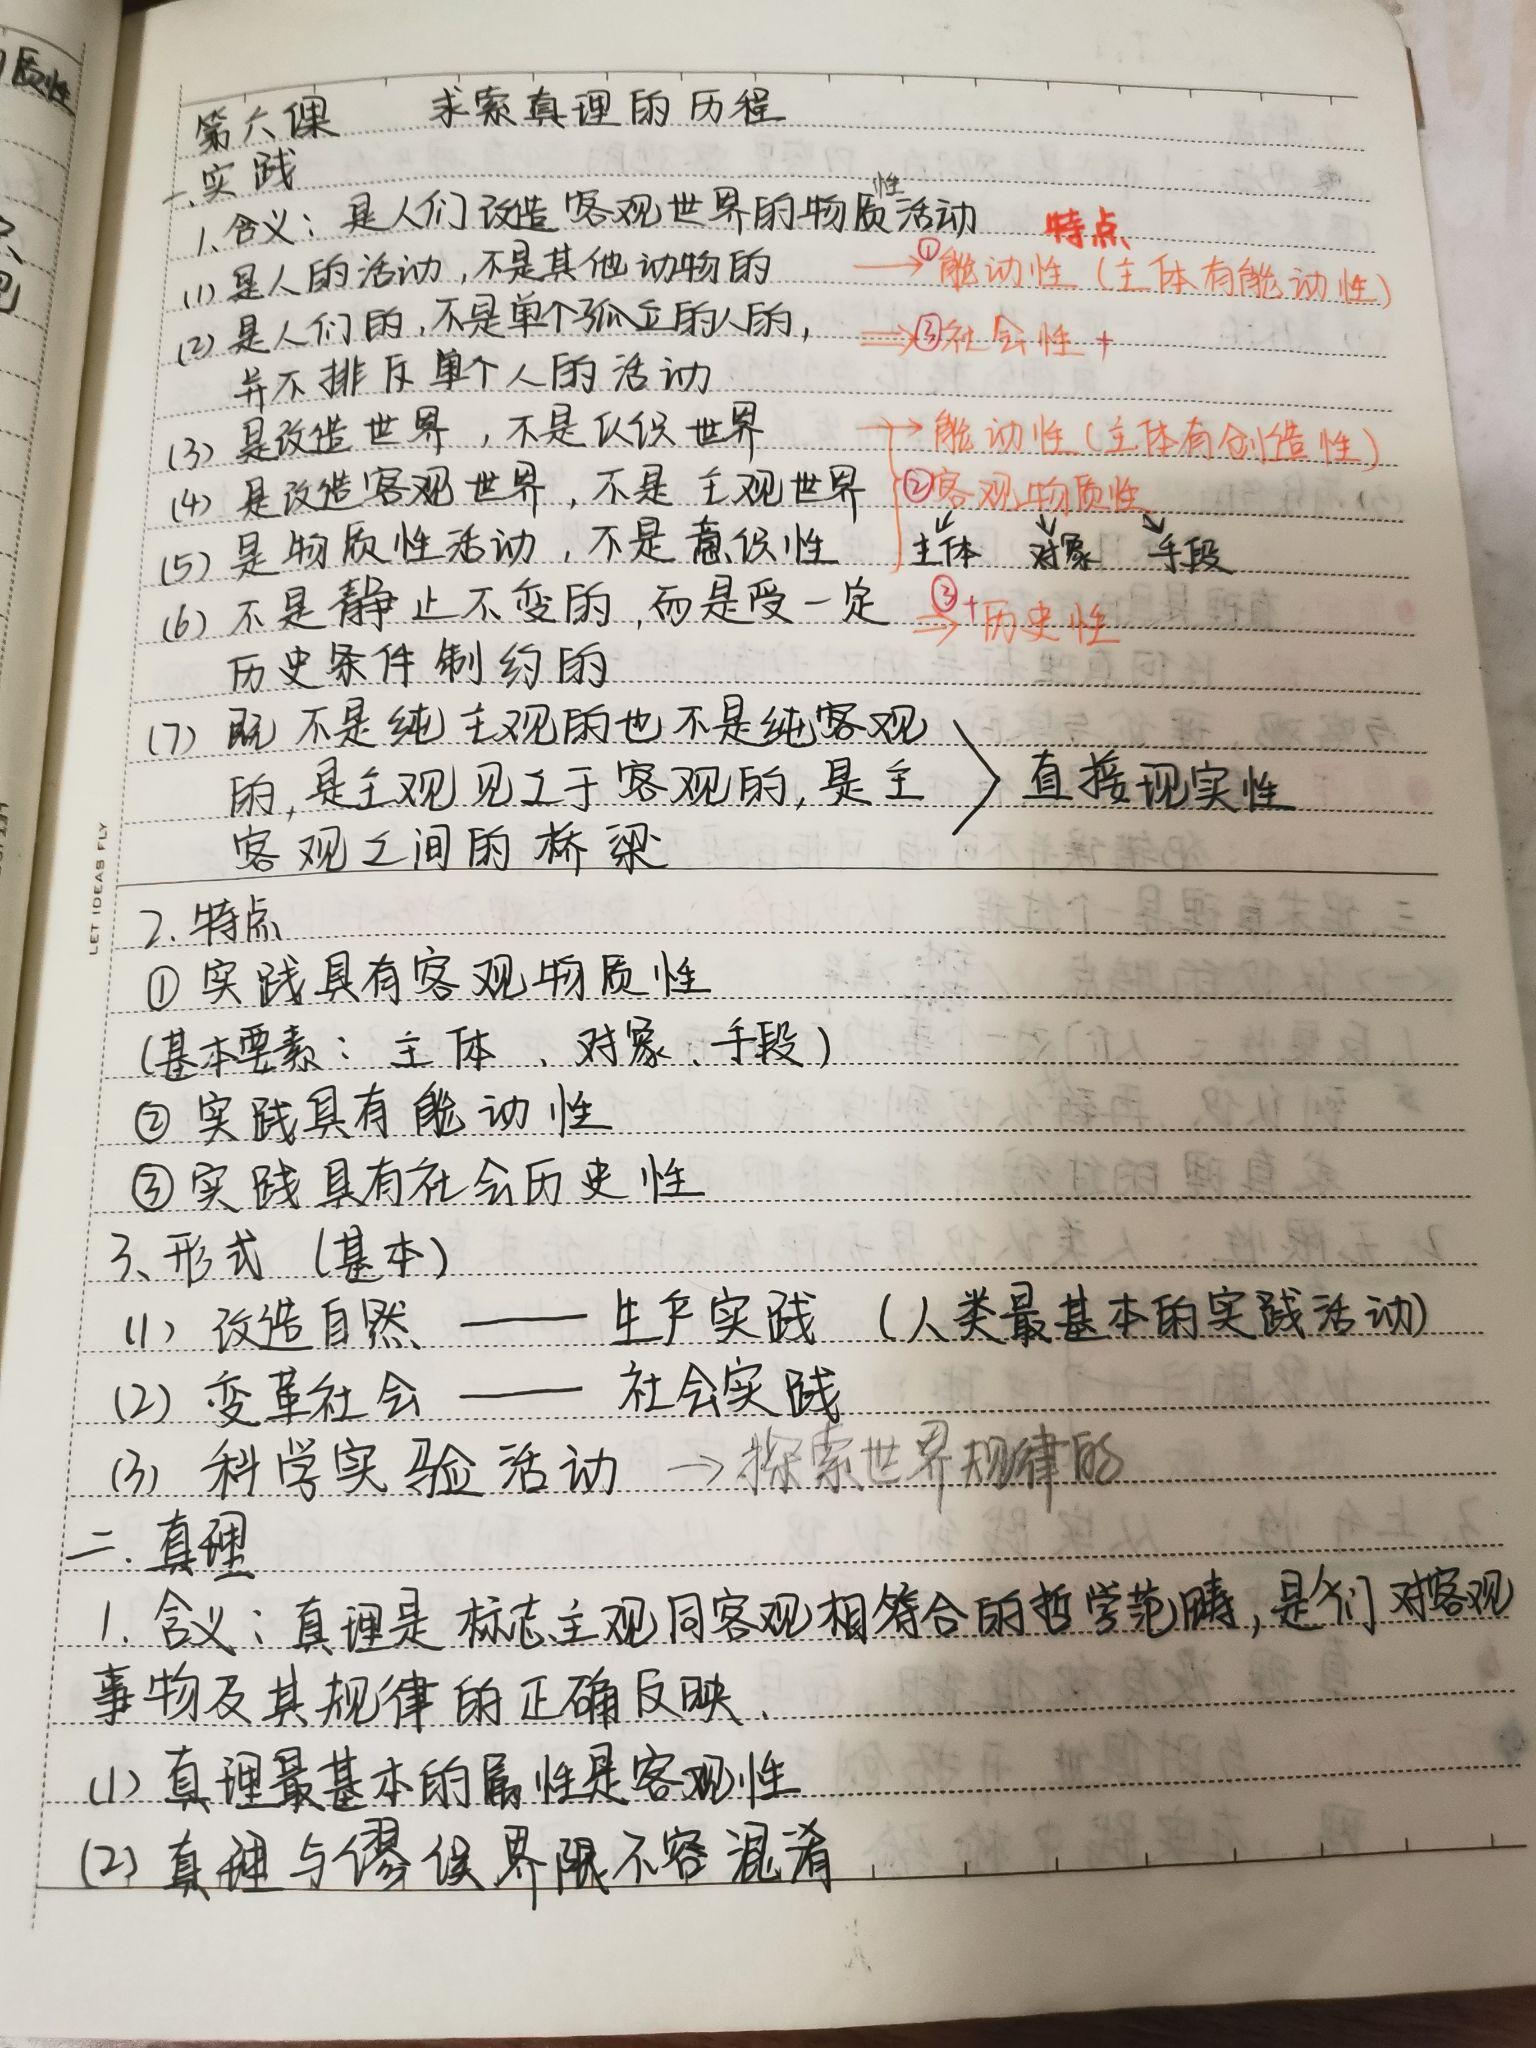 第六课 求索真理的历程
一、实践
1、含义：是人们改造客观世界的物质性活动 特点
(1) 是人的活动，不是其他动物的 → ①能动性（主体有能动性）
(2) 是人们的，不是单个孤立的人的， ⇒ ③社会性 +
并不排斥单个人的活动
(3) 是改造世界，不是认识世界 → 能动性（主体有创造性）
(4) 是改造客观世界，不是主观世界 ②客观物质性
(5) 是物质性活动，不是意识性 主体 对象 手段
(6) 不是静止不变的，而是受一定 ⇒ ③+历史性
历史条件制约的
(7) 既不是纯主观的也不是纯客观
的，是主观见之于客观的，是主 直接现实性
客观之间的桥梁
2. 特点
① 实践具有客观物质性
(基本要素：主体、对象、手段)
② 实践具有能动性
③ 实践具有社会历史性
3、形式（基本）
(1) 改造自然 —— 生产实践（人类最基本的实践活动）
(2) 变革社会 —— 社会实践
(3) 科学实验活动 → 探索世界规律的
二、真理
1. 含义：真理是标志主观同客观相符合的哲学范畴，是们对客观
事物及其规律的正确反映、
(1) 真理最基本的属性是客观性
(2) 真理与谬误界限不容混淆
LET IDEAS FLY
质性